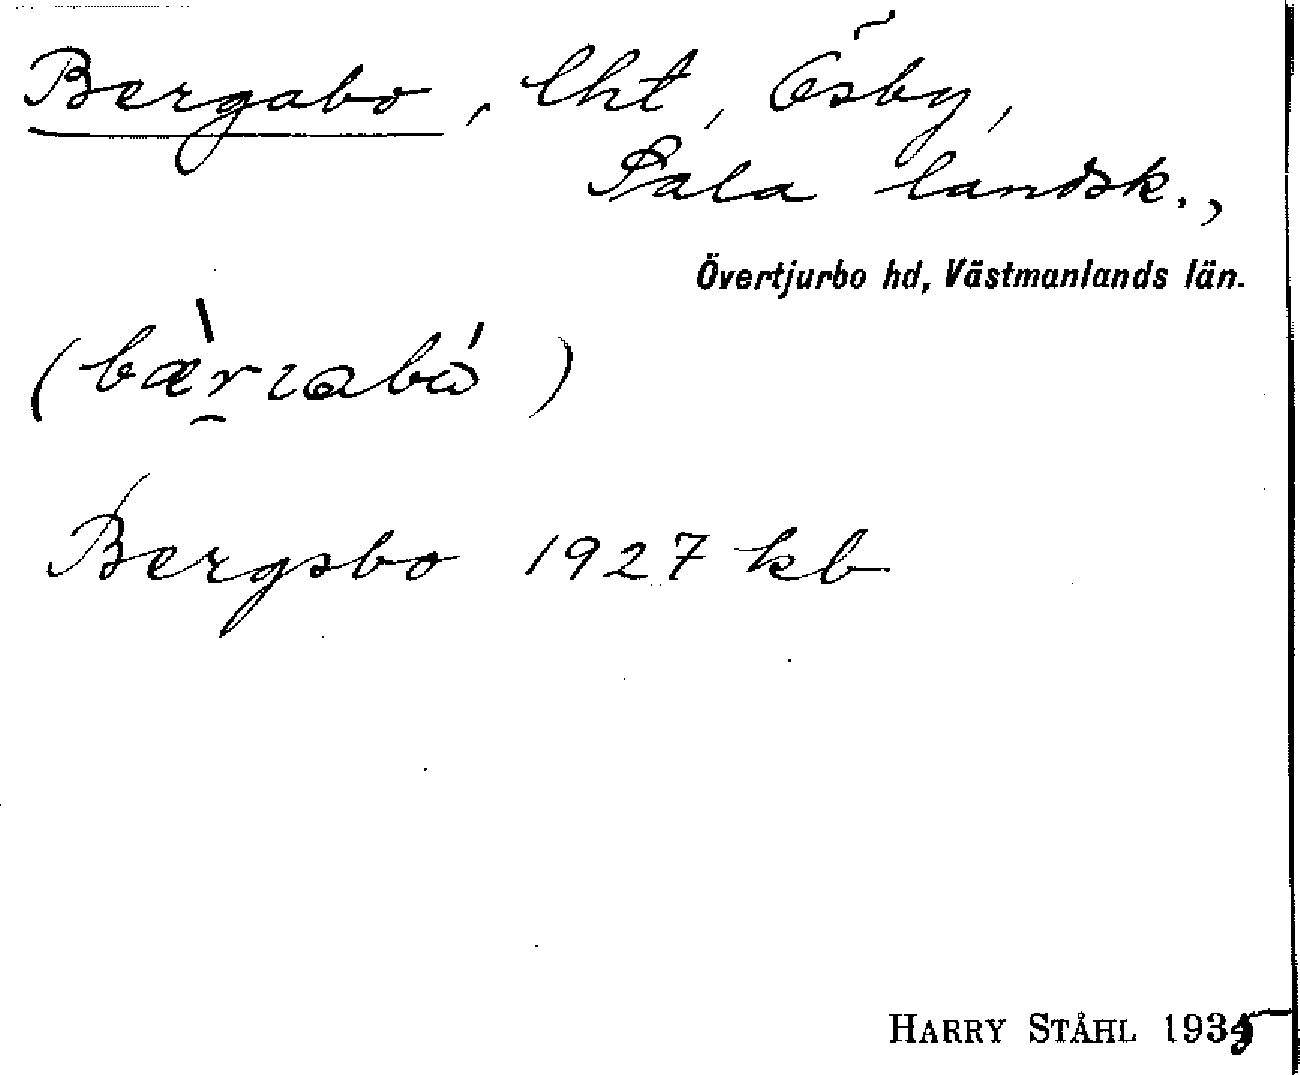 Bergabo, lht, Ösby,
Sala landsk.,
Övertjurbo hd, Västmanlands län.
Bergsbo 1927 kb
HARRY STÅHL 1935